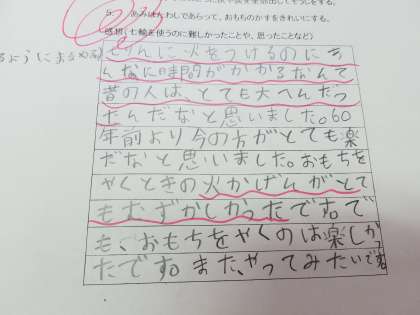 5. あみはたわしであらって、おもちのかすをきれいにする。
感想(七輪を使うのに難しかったことや、思ったことなど)
ようにまるめる
せいりんに火をつけるのにこ
んなに時間がかかるなんて
昔の人は、とても大へんだっ
たんだなと思いました。60
年前より今の方がとても楽
だなと思いました。おもちを
やくときの火かげんがとて
もむずかしかったです。で
も、おもちをやくのは楽しかっ
たです。また、やってみたいです。